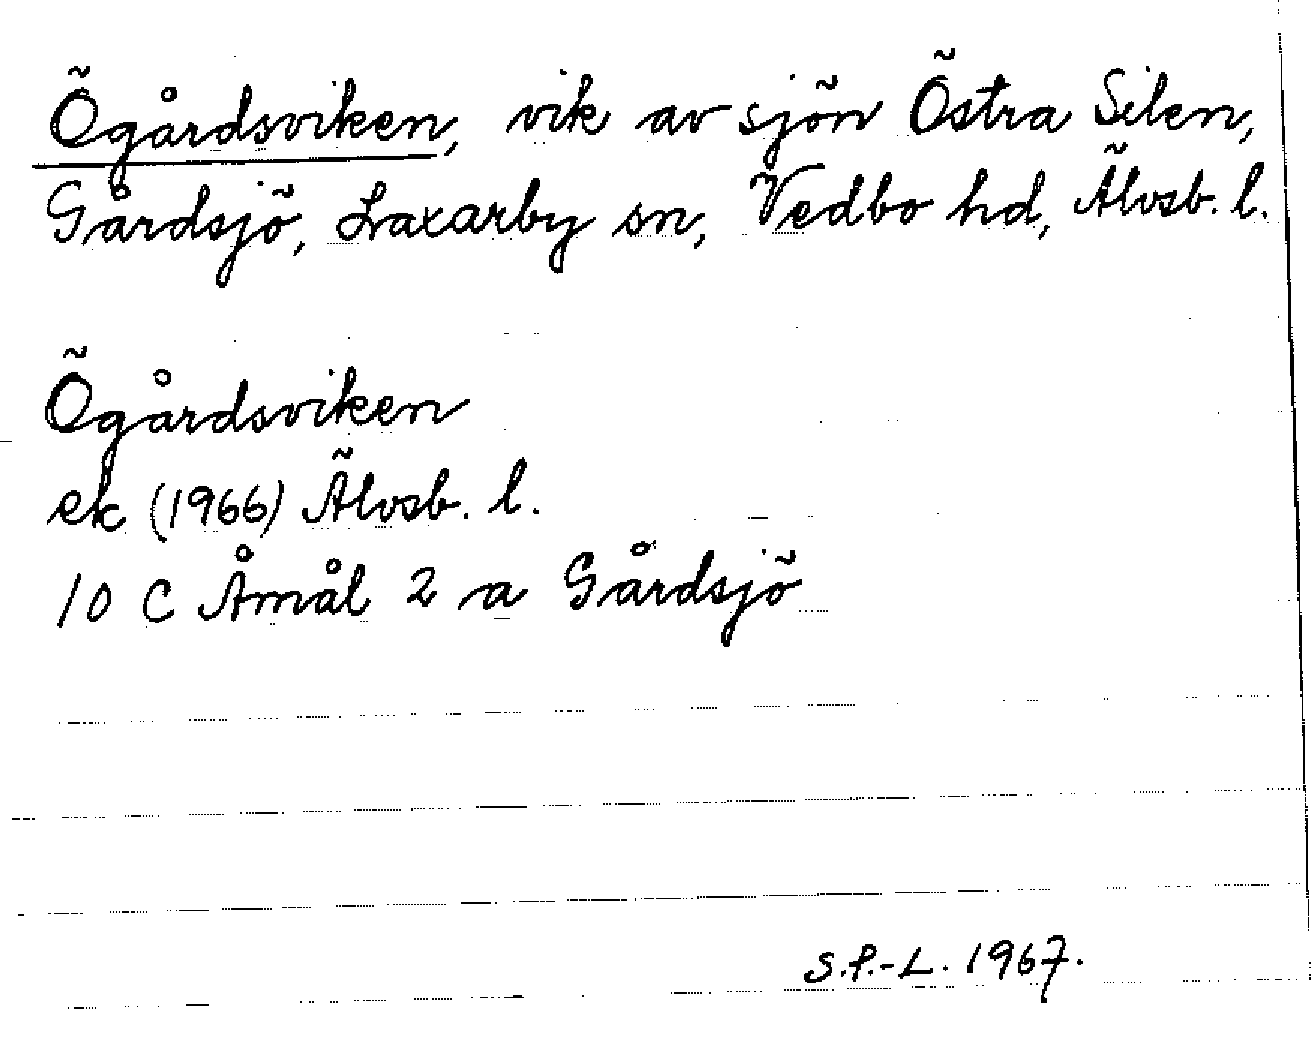 Ögårdsviken, vik av sjön Östra Silen,
Gårdsjö, Laxarby sn, Vedbo hd, Älvsb. l.
Ögårdsviken
ek (1966) Älvsb. l.
10 C Åmål 2 a Gårdsjö
S.P.-L. 1967.